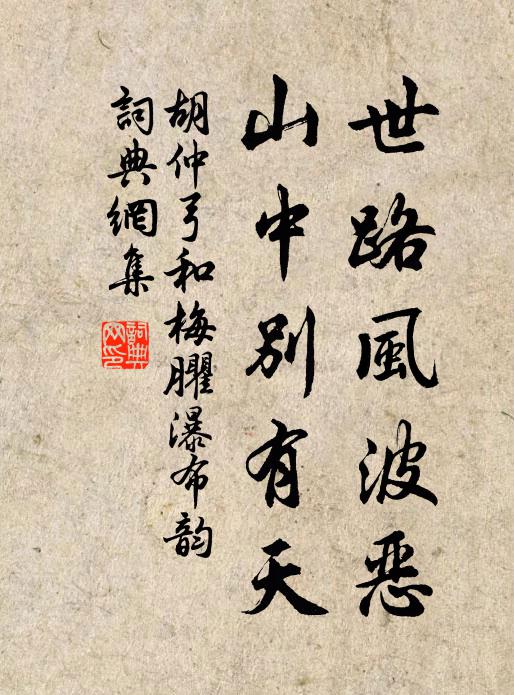 世路風波恶
山中別有天
胡仲弓和梅臞瀑布韵
詞典網集
詞典網印